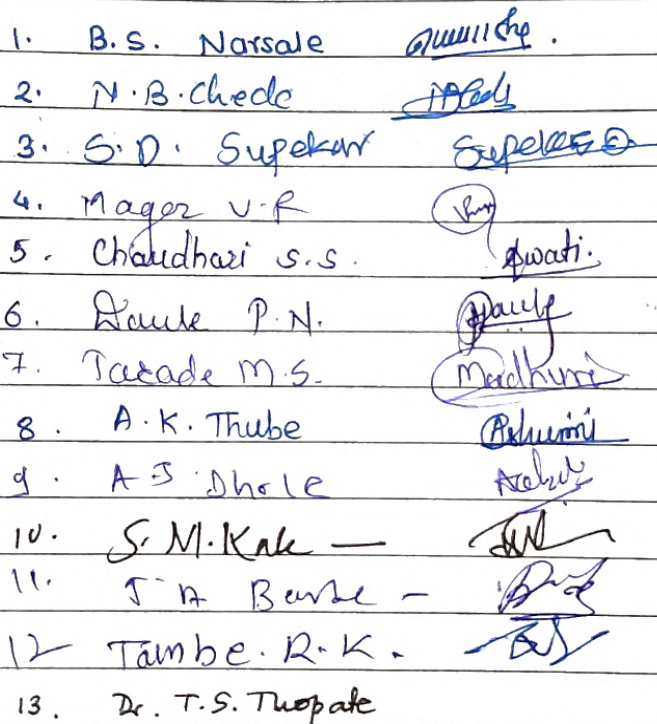 1. B.S. Narsale
2. N.B. Chede
3. S.D. Supekar Supekar
4. Mager V.R
5. Chaudhari S.S. Swati.
6. Daule P.N. Daule
7. Tarade M.S. Madhuri
8. A.K. Thube Ashwini
9. A S Dhole
10. S.M. Kale —
11. J A Barbe -
12 Tambe. R.K.
13. Dr. T.S. Thopate